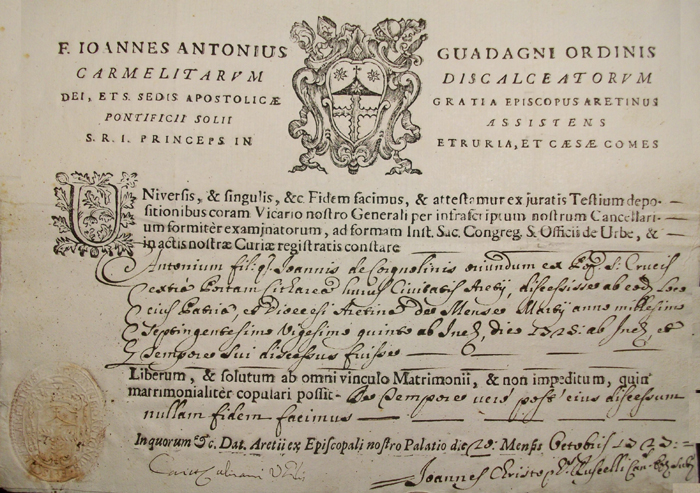 F. IOANNES ANTONIUS GUADAGNI ORDINIS
CARMELITARVM DISCALCEATORVM
DEI, ET S. SEDIS APOSTOLICÆ GRATIA EPISCOPUS ARETINUS
PONTIFICII SOLII ASSISTENS
S. R. I. PRINCEPS IN ETRURIA, ET CÆSÆ COMES
UNiversis, & singulis, &c. Fidem facimus, & attestamur ex juratis Testium depo-
sitionibus coram Vicario nostro Generali per infrascriptum nostrum Cancellari-
um formitèr examinatorum, ad formam Inst. Sac. Congreg. S. Officii de Urbe, &
in actis nostræ Curiæ registratis constare
Antonium Joannis de oriundum ex S. Crucis
extra Portam huius Civitatis Aretij, discessisse ab eod. loco
eius Patria, et Diocesi Aretina de Mense Martij anno millesimo
Septingentesimo Vigesimo quinto ab die ab et
Tempore sui discessus fuisse
Liberum, & solutum ab omni vinculo Matrimonii, & non impeditum, quin
matrimonialitèr copulari possit. De Tempore vero post eius discessum
nullam fidem facimus
In quorum &c. Dat. Aretii ex Episcopali nostro Palatio die Mensis Octobris
Joannes